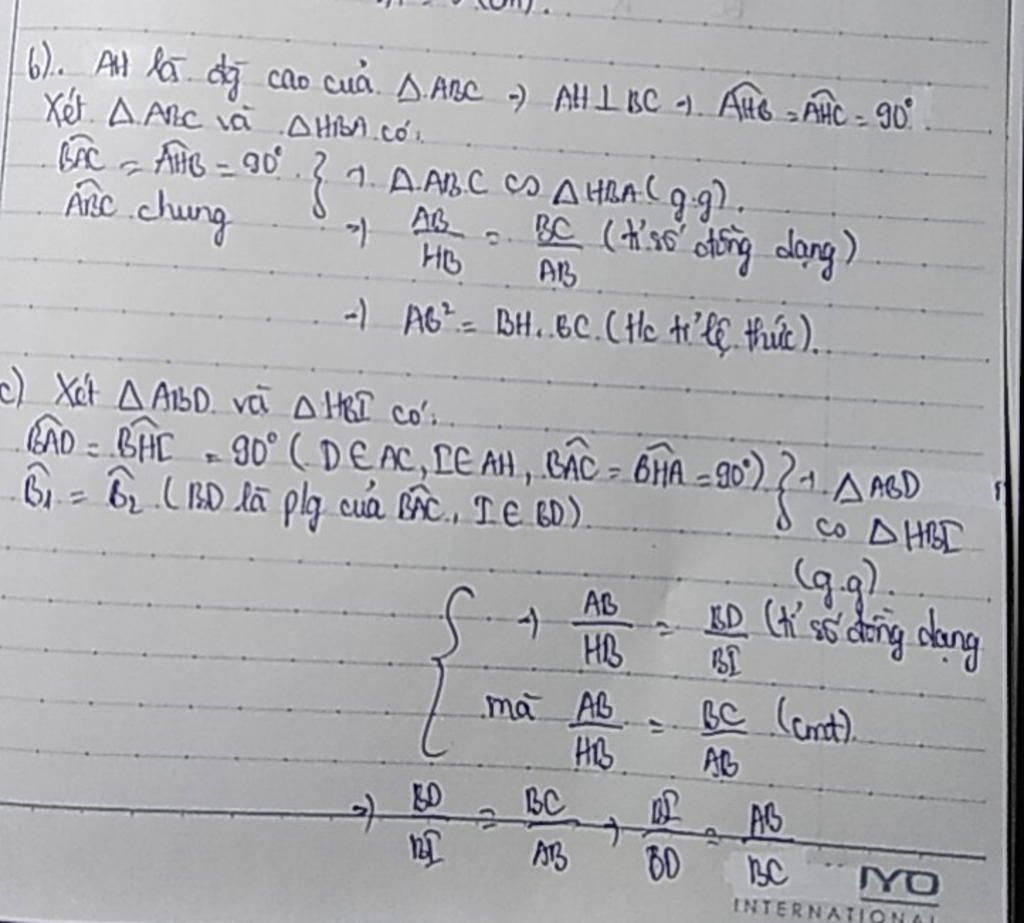 b). AH là đg cao của △ABC → AH ⊥ BC → \widehat{AHB} = \widehat{AHC} = 90°.
Xét △ABC và △HBA có:
\widehat{BAC} = \widehat{AHB} = 90° } → △ABC ∽ △HBA (g.g).
\widehat{ABC} chung
→ \frac{AB}{HB} = \frac{BC}{AB} (tỉ số đồng dạng)
→ AB² = BH.BC. (t/c tỉ lệ thức).
c) Xét △ABD và △HBI có:
\widehat{BAD} = \widehat{BHI} = 90° (D∈AC, I∈AH, \widehat{BAC} = \widehat{BHA} = 90°) } → △ABD
\widehat{B}₁ = \widehat{B}₂ (BD là p/g của \widehat{BAC}, I∈BD) ∽ △HBI
(g.g).
{ → \frac{AB}{HB} = \frac{BD}{BI} (tỉ số đồng dạng
mà \frac{AB}{HB} = \frac{BC}{AB} (cmt).
→ \frac{BD}{BI} = \frac{BC}{AB} → \frac{BI}{BD} = \frac{AB}{BC}
IYO
INTERNATIONA